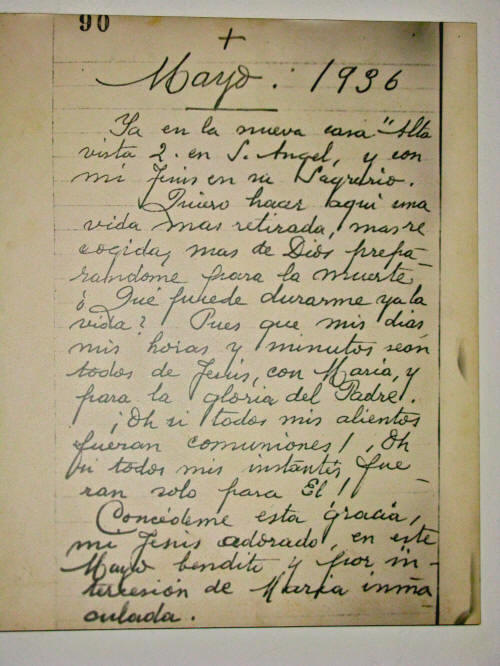 90
+
Mayo. 1936
Ya en la nueva casa "Alta
vista 2. en S. Angel, y con
mi Jesús en su Sagrario.
Quiero hacer aquí una
vida mas retirada, mas re
cogida, mas de Dios prepa-
randome para la muerte
¿Qué puede durarme ya la
vida? Pues que mis dias
mis horas y minutos sean
todos de Jesús, con María, y
para la gloria del Padre.
¡Oh si todos mis alientos
fueran comuniones! ¡Oh
si todos mis instantes fue-
ran solo para El!
Concédeme esta gracia,
mi Jesús adorado, en este
Mayo bendito y por in-
tercesión de María inma
culada.